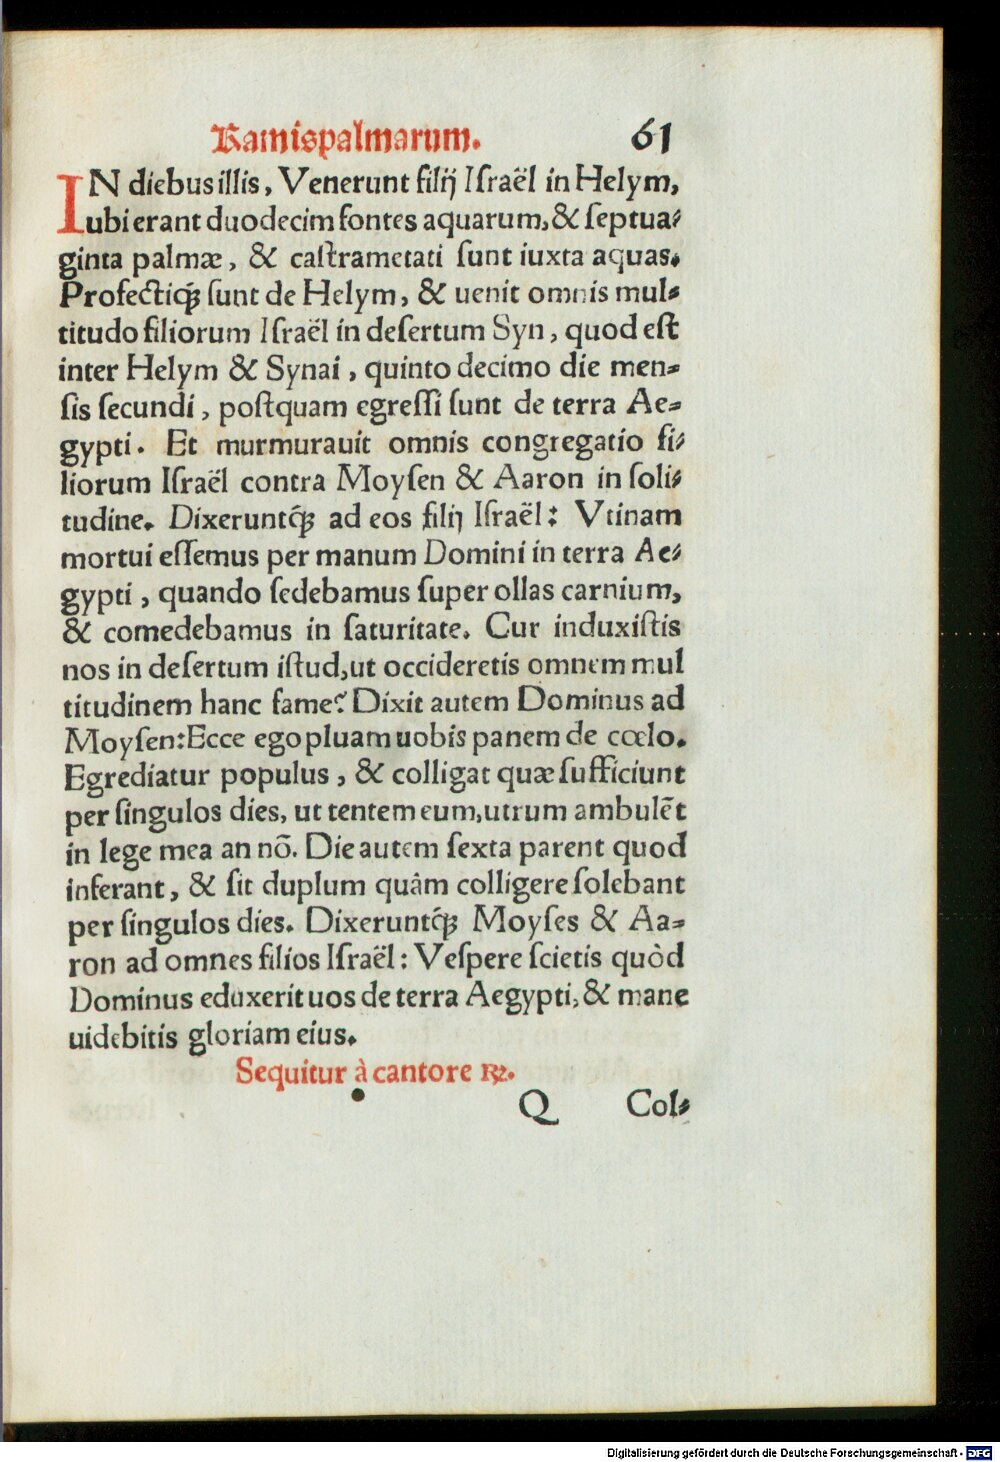 Ramispalmarum. 61
IN diebus illis, Venerunt filij Israël in Helym,
ubi erant duodecim fontes aquarum, & septua⸗
ginta palmæ, & castrametati sunt iuxta aquas.
Profectiq́ꝫ sunt de Helym, & uenit omnis mul⸗
titudo filiorum Israël in desertum Syn, quod est
inter Helym & Synai, quinto decimo die men⸗
sis secundi, postquam egressi sunt de terra Ae⸗
gypti. Et murmurauit omnis congregatio fi⸗
liorum Israël contra Moysen & Aaron in soli⸗
tudine. Dixeruntq́ꝫ ad eos filij Israël: Vtinam
mortui essemus per manum Domini in terra Ae⸗
gypti, quando sedebamus super ollas carnium,
& comedebamus in saturitate. Cur induxistis
nos in desertum istud, ut occideretis omnem mul
titudinem hanc fame? Dixit autem Dominus ad
Moysen: Ecce ego pluam uobis panem de cœlo.
Egrediatur populus, & colligat quæ sufficiunt
per singulos dies, ut tentem eum, utrum ambulẽt
in lege mea an nõ. Die autem sexta parent quod
inferant, & sit duplum quàm colligere solebant
per singulos dies. Dixeruntq́ꝫ Moyses & Aa⸗
ron ad omnes filios Israël: Vespere scietis quòd
Dominus eduxerit uos de terra Aegypti, & mane
uidebitis gloriam eius.
Sequitur à cantore ℞.
Q Col⸗
Digitalisierung gefördert durch die Deutsche Forschungsgemeinschaft - DFG